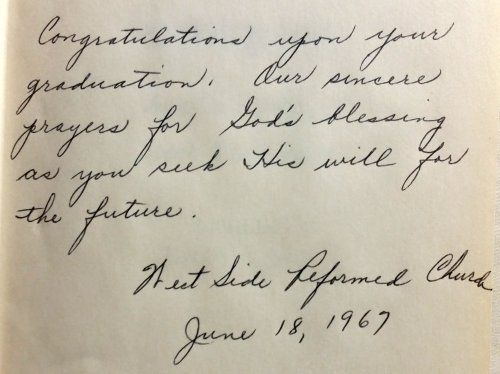 Congratulations upon your
graduation. Our sincere
prayers for God's blessing
as you seek His will for
the future.
West Side Reformed Church
June 18, 1967